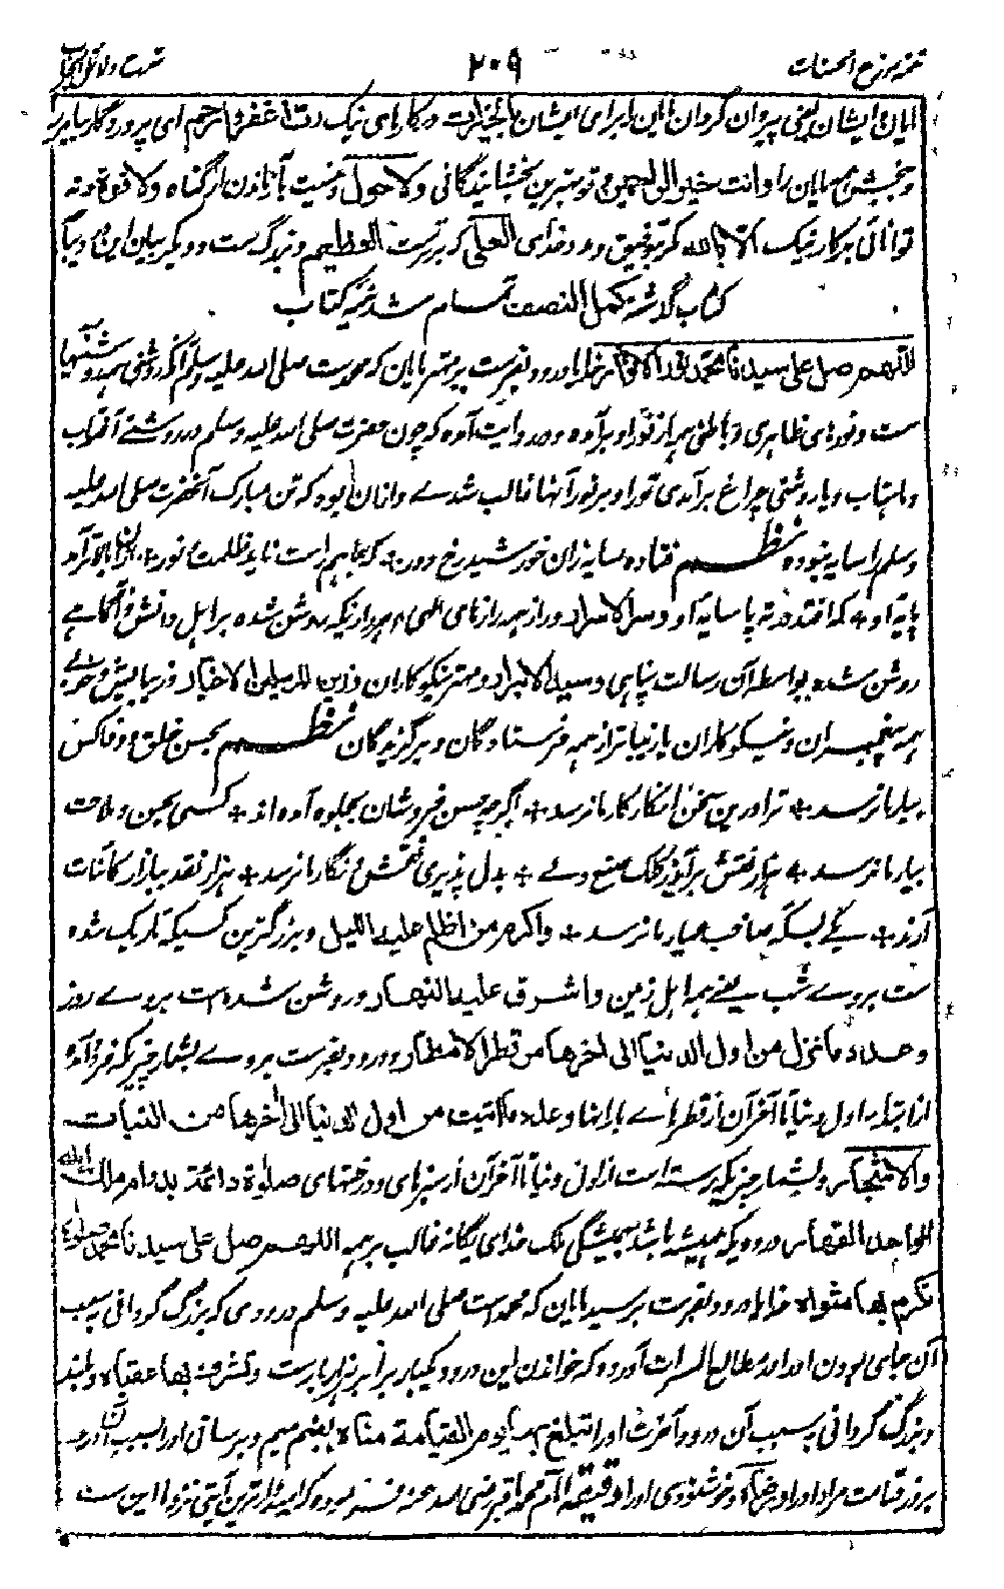 ۲۰۹
ایشان یعنی پیروان گردان این را برای ایشان بالخیرات و کارهای نیک رب اغفر و ارحم ای پروردگار بیامرز
و ببخش و انت خیر الراحمین و تو بهترین بخشایندگانی و لا حول و نیست بازماندن از گناه و لا قوة و نه
توانائی بر کار نیک الا بالله مگر بتوفیق و مدد خدای العلی که برترست العظیم و بزرگ ست و دیگر بیان این در دیباچه
کتاب گذشته تکمل النصف تمام شد نیمهٔ کتاب
اللهم صل علی سیدنا محمد نور الانوار خدایا درود بفرست بر مهتر مایان که محمد ست صلی الله علیه وسلم که روشنی همه روشنیها
ست و نورهای ظاهری و باطنی همه از نور او برآمده و در روایت آمده که چون حضرت صلی الله علیه وسلم در روشنی آفتاب
و ماهتاب و یا روشنی چراغ برآمدی نور او بر نور آنها غالب شدے و ازان بود که تن مبارک آنحضرت صلی الله علیه
وسلم را سایه نبوده نظم فتاده سایه زان خورشید رخ دور +
پایهٔ او + سایه او و سر الاسرار و راز همه رازهای الهی روشن شده بر اهل دانش و آگاهے
روشن شده بواسطه آن رسالت پناهی و سید الابرار و مهتر نیکوکاران و زین المرسلین الاخیار و زیبایش و خوبے
همه پیغمبران و نیکوکاران یا زیباتر از همه فرستادگان و برگزیدگان نظم بحسن خلق و وفا کس
بیار ما نرسد + ترا درین سخن انکار کار ما نرسد + اگرچه حسن فروشان بجلوه آمده اند + کسی بحسن و ملاحت
بیار ما نرسد + هزار نقش برآید ز کلک صنع ولے + بدل پذیری نقش نگار ما نرسد + هزار نقد ببازار کائنات
آرند + یکے بسکه صاحب عیار ما نرسد + و اکرم من اظلم علیه اللیل و بزرگترین کسیکه تاریک شده
ست بروے شب یعنے همه اهل زمین و اشرق علیه النهار و روشن شده است بروے روز
و عدد ما نزل من اول الدنیا الی اخرها من قطر الامطار و درود بفرست بروے بشمار چیزیکه فرود آمد
از ابتداء اول دنیا تا آخر آن از قطرهاے بارانها و عدد ما نبت من اول الدنیا الی اخرها من النبات
و الاشجار و بشمار چیزیکه رسته است از اول دنیا تا آخر آن از سبزهای و درختهای صلوة دائمة بدوام ملک الله
الواحد القهار درودیکه همیشه باشد بهمیشگی ملک خدای یگانه غالب بر همه اللهم صل علی سیدنا محمد صلوة
تکرم بها مثواه خدایا درود بفرست بر سید مایان که محمد ست صلی الله علیه وسلم درودی که بزرگ گردانی به سبب
آن جای بودن او و در مطالع المسرات آورده که خواندن این درود یکبار برابر ده هزار بار ست و تشرف بها عقباه و بلند
و بزرگ گردانی به سبب آن درود آخرت او را و تبلغ بها یوم القیامة مناه بضم میم و برسانی او را بسبب آن درود
بروز قیامت مراد او را و رضاه و خوشنودی او را دقیقه امام محمد باقر رضی الله عنه فرموده که امیدوارترین آیتی نزد ما این ست